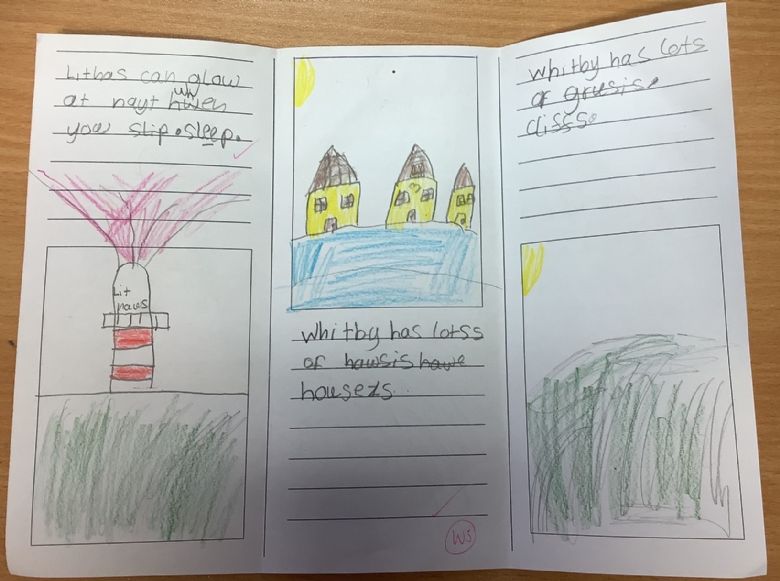 Lithas can glow
at nayt hwen
wh
you slip. sleep.
Lit
haws
Whitby has lotss
of hawsis hawe
housezs.
WS
Whitby has lots
of grusis.
clisss.